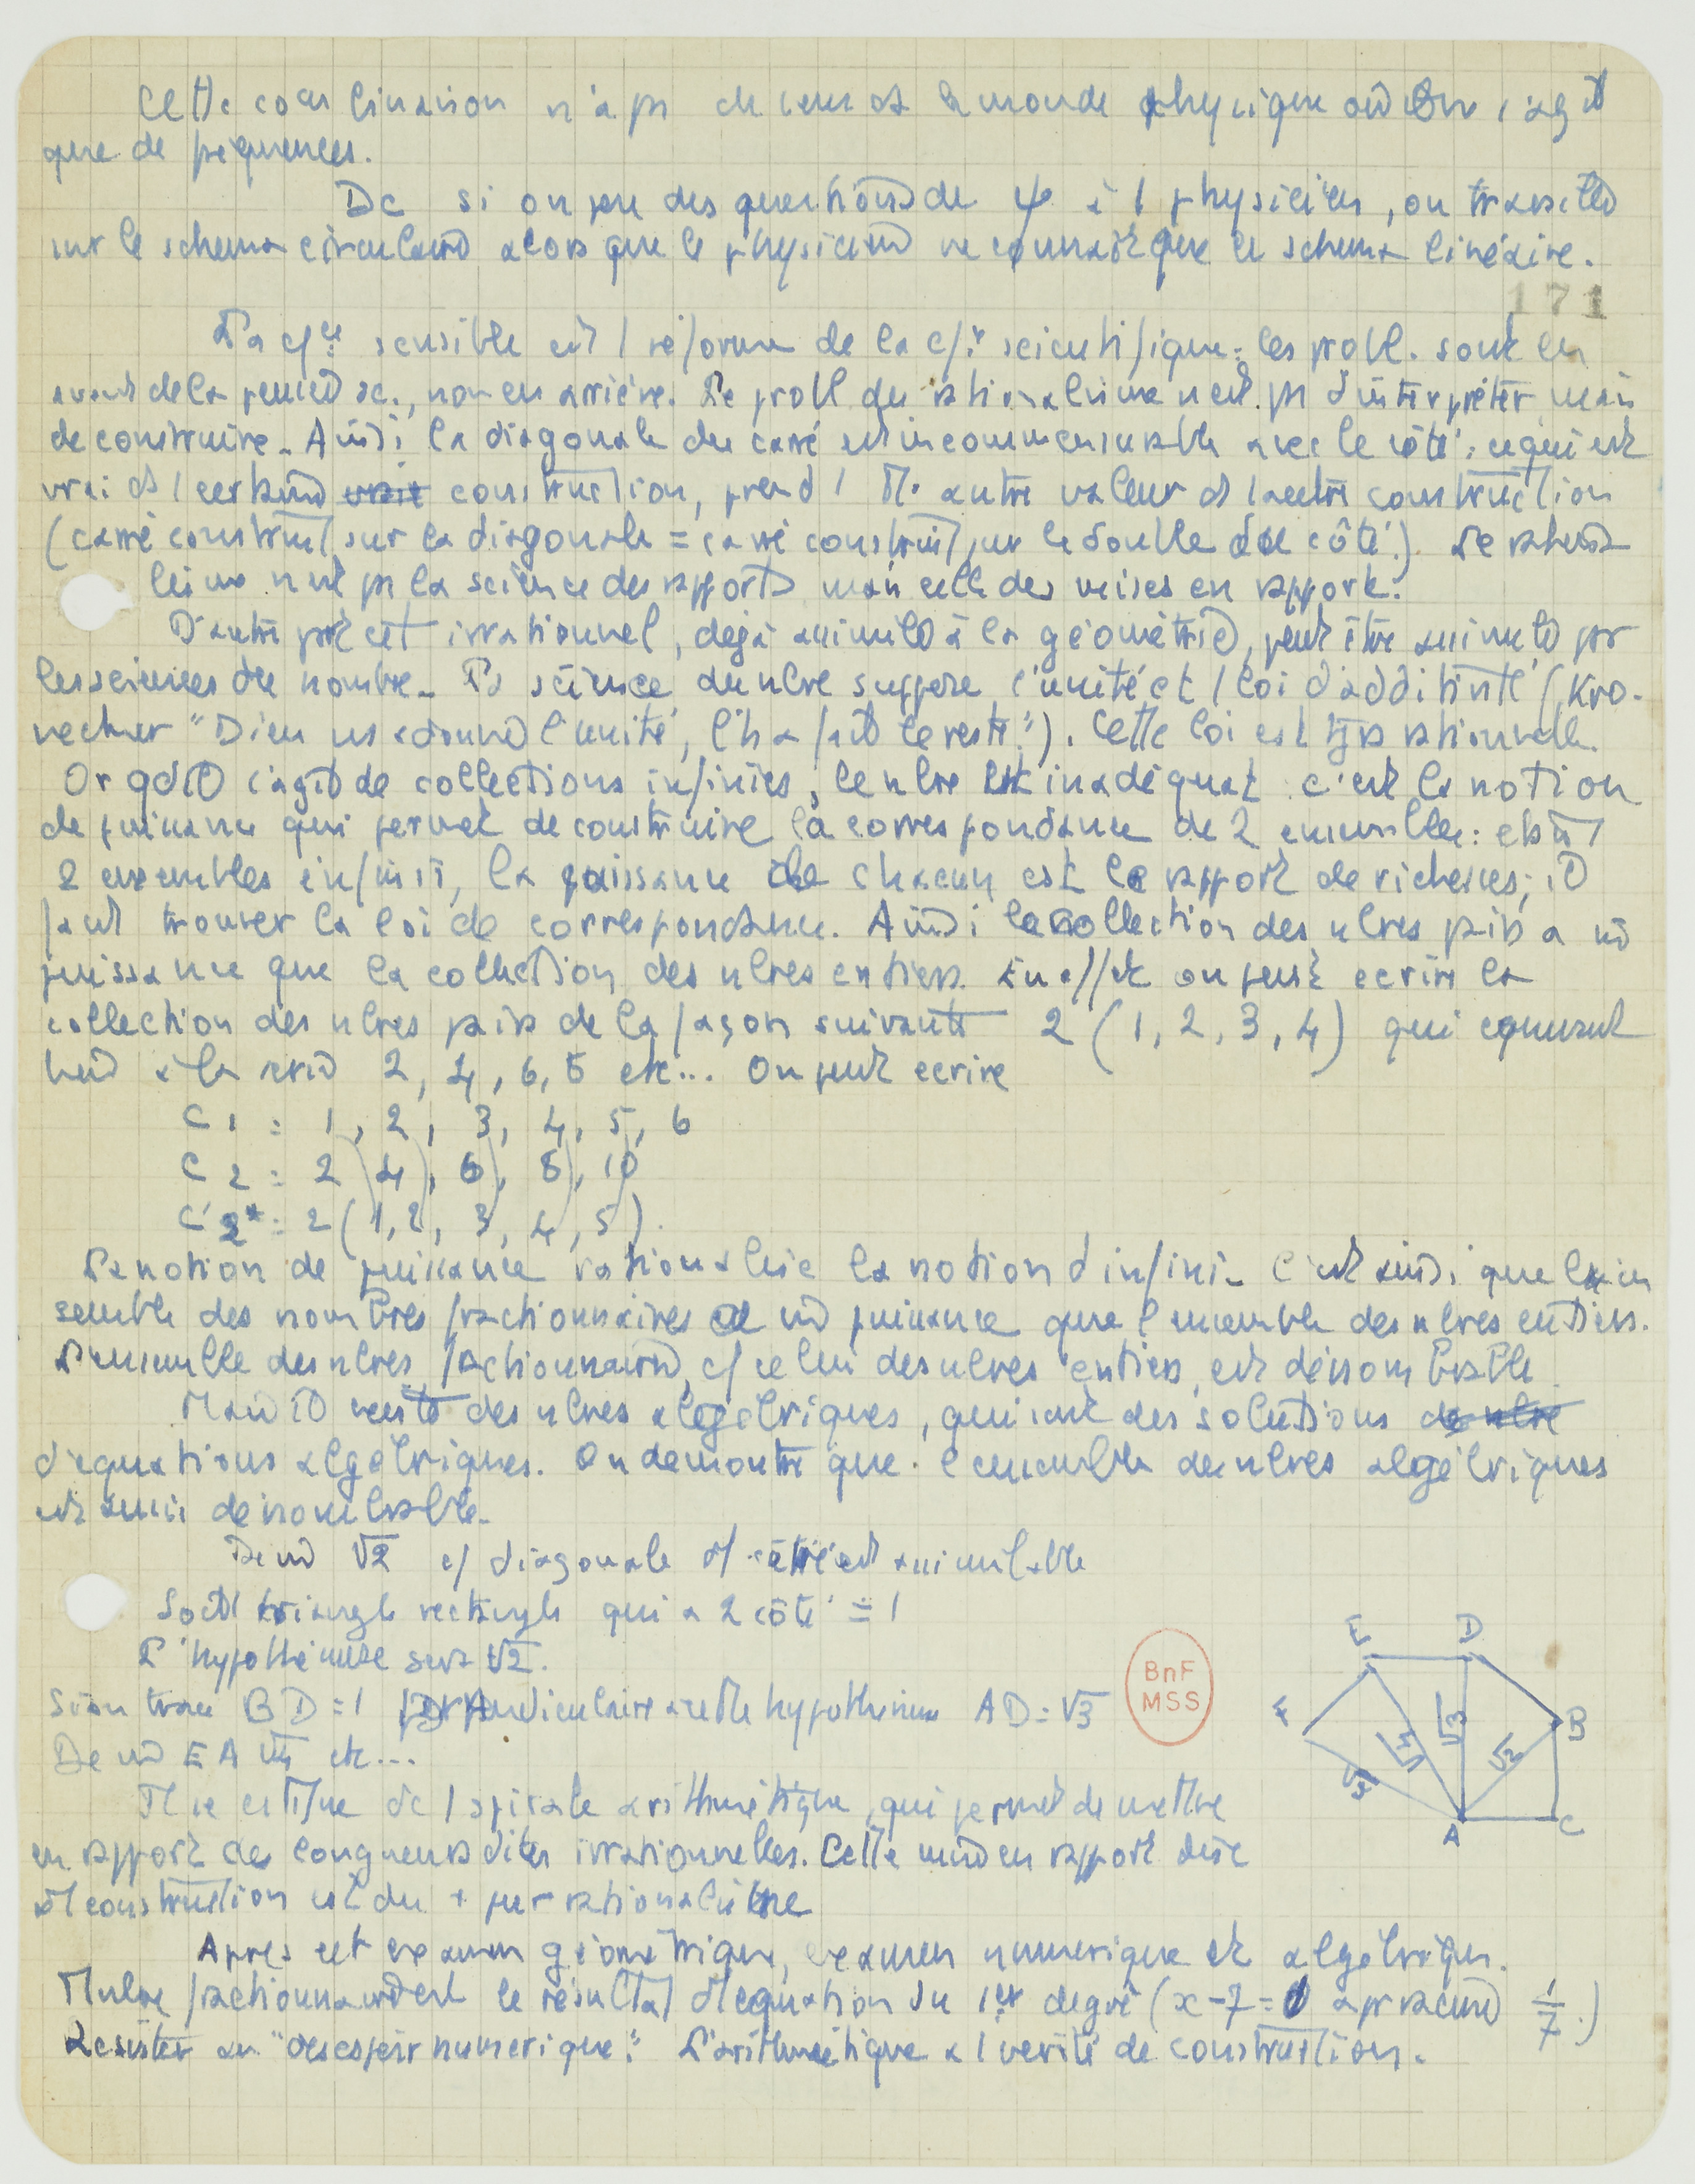 Cette coordination n'a pas de sens ds le monde physique où il ne s'agit
que de fréquences.
Dc si on pose des questions de ψ à 1 physicien, on travaille
sur le schema circulaire alors que le physicien ne connaît que le schema linéaire.
171
La cce sensible est 1 réforme de la cce scientifique : les probl. sont en
avant de la pensée sc., non en arrière. Le probl du rationalisme n'est pas d'interpréter mais
de construire. Ainsi la diagonale du carré est incommensurable avec le côté : ce qui est
vrai ds 1 certaine construction, prend 1 autre valeur ds 1 autre construction
(carré construit sur la diagonale = carré construit sur le double du côté.) Le rationa
lisme n'est pas la science des rapports mais celle des mises en rapport.
D'autre part cet irrationnel, déjà assimilé à la géométrie, peut être assimilé par
les sciences du nombre. La science du nbre suppose l'unité et 1 loi d'additivité (Kro-
necker "Dieu ns a donné l'unité, l'h a fait le reste"). Cette loi est tjrs rationnelle.
Or qd il s'agit de collections infinies, le nbre est inadéquat : c'est la notion
de puissance qui permet de construire la correspondance de 2 ensembles : étant
2 ensembles infinis, la puissance de chacun est le rapport de richesses ; il
faut trouver la loi de correspondance. Ainsi la collection des nbres pairs a m̂
puissance que la collection des nbres entiers. En effet on peut ecrire la
collection des nbres pairs de la façon suivante 2 (1, 2, 3, 4) qui équivaut
bien à la série 2, 4, 6, 8 etc... On peut ecrire
C 1 : 1, 2, 3, 4, 5, 6
C 2 : 2, 4, 6, 8, 10
C' 2* : 2 (1, 2, 3, 4, 5).
La notion de puissance rationalise la notion d'infini. C'est ainsi que l'en
semble des nombres fractionnaires a m̂ puissance que l'ensemble des nbres entiers.
L'ensemble des nbres fractionnaires, c/ celui des nbres entiers, est dénombrable.
Mais il reste des nbres algébriques, qui sont des solutions de nbre
d'equations algébriques. On demontre que l'ensemble des nbres algébriques
est aussi dénombrable.
De m̂ √2 c/ diagonale du carré est assimilable
Soit 1 triangle rectangle qui a 2 côté = 1
L'hypothénuse sera √2.
Si on trace BD = 1 perpendiculaire à cette hypothénuse AD = √3
De m̂ EA √4 etc...
E D
F B
√5 √4 √3 √2
A C
spirale arithmétique, qui permet de mettre
en rapport des longueurs dites irrationnelles. Cette mise en rapport
construction est du + pur rationalisme
Apres cet examen géométrique, examen numerique et algébrique.
fractionnaire est le résultat d'1 equation du 1er degré (x - 7 = 0 a pr racine 1/7.)
Resister au "desespoir numerique". L'arithmétique a 1 verité de construction.
BnF
MSS